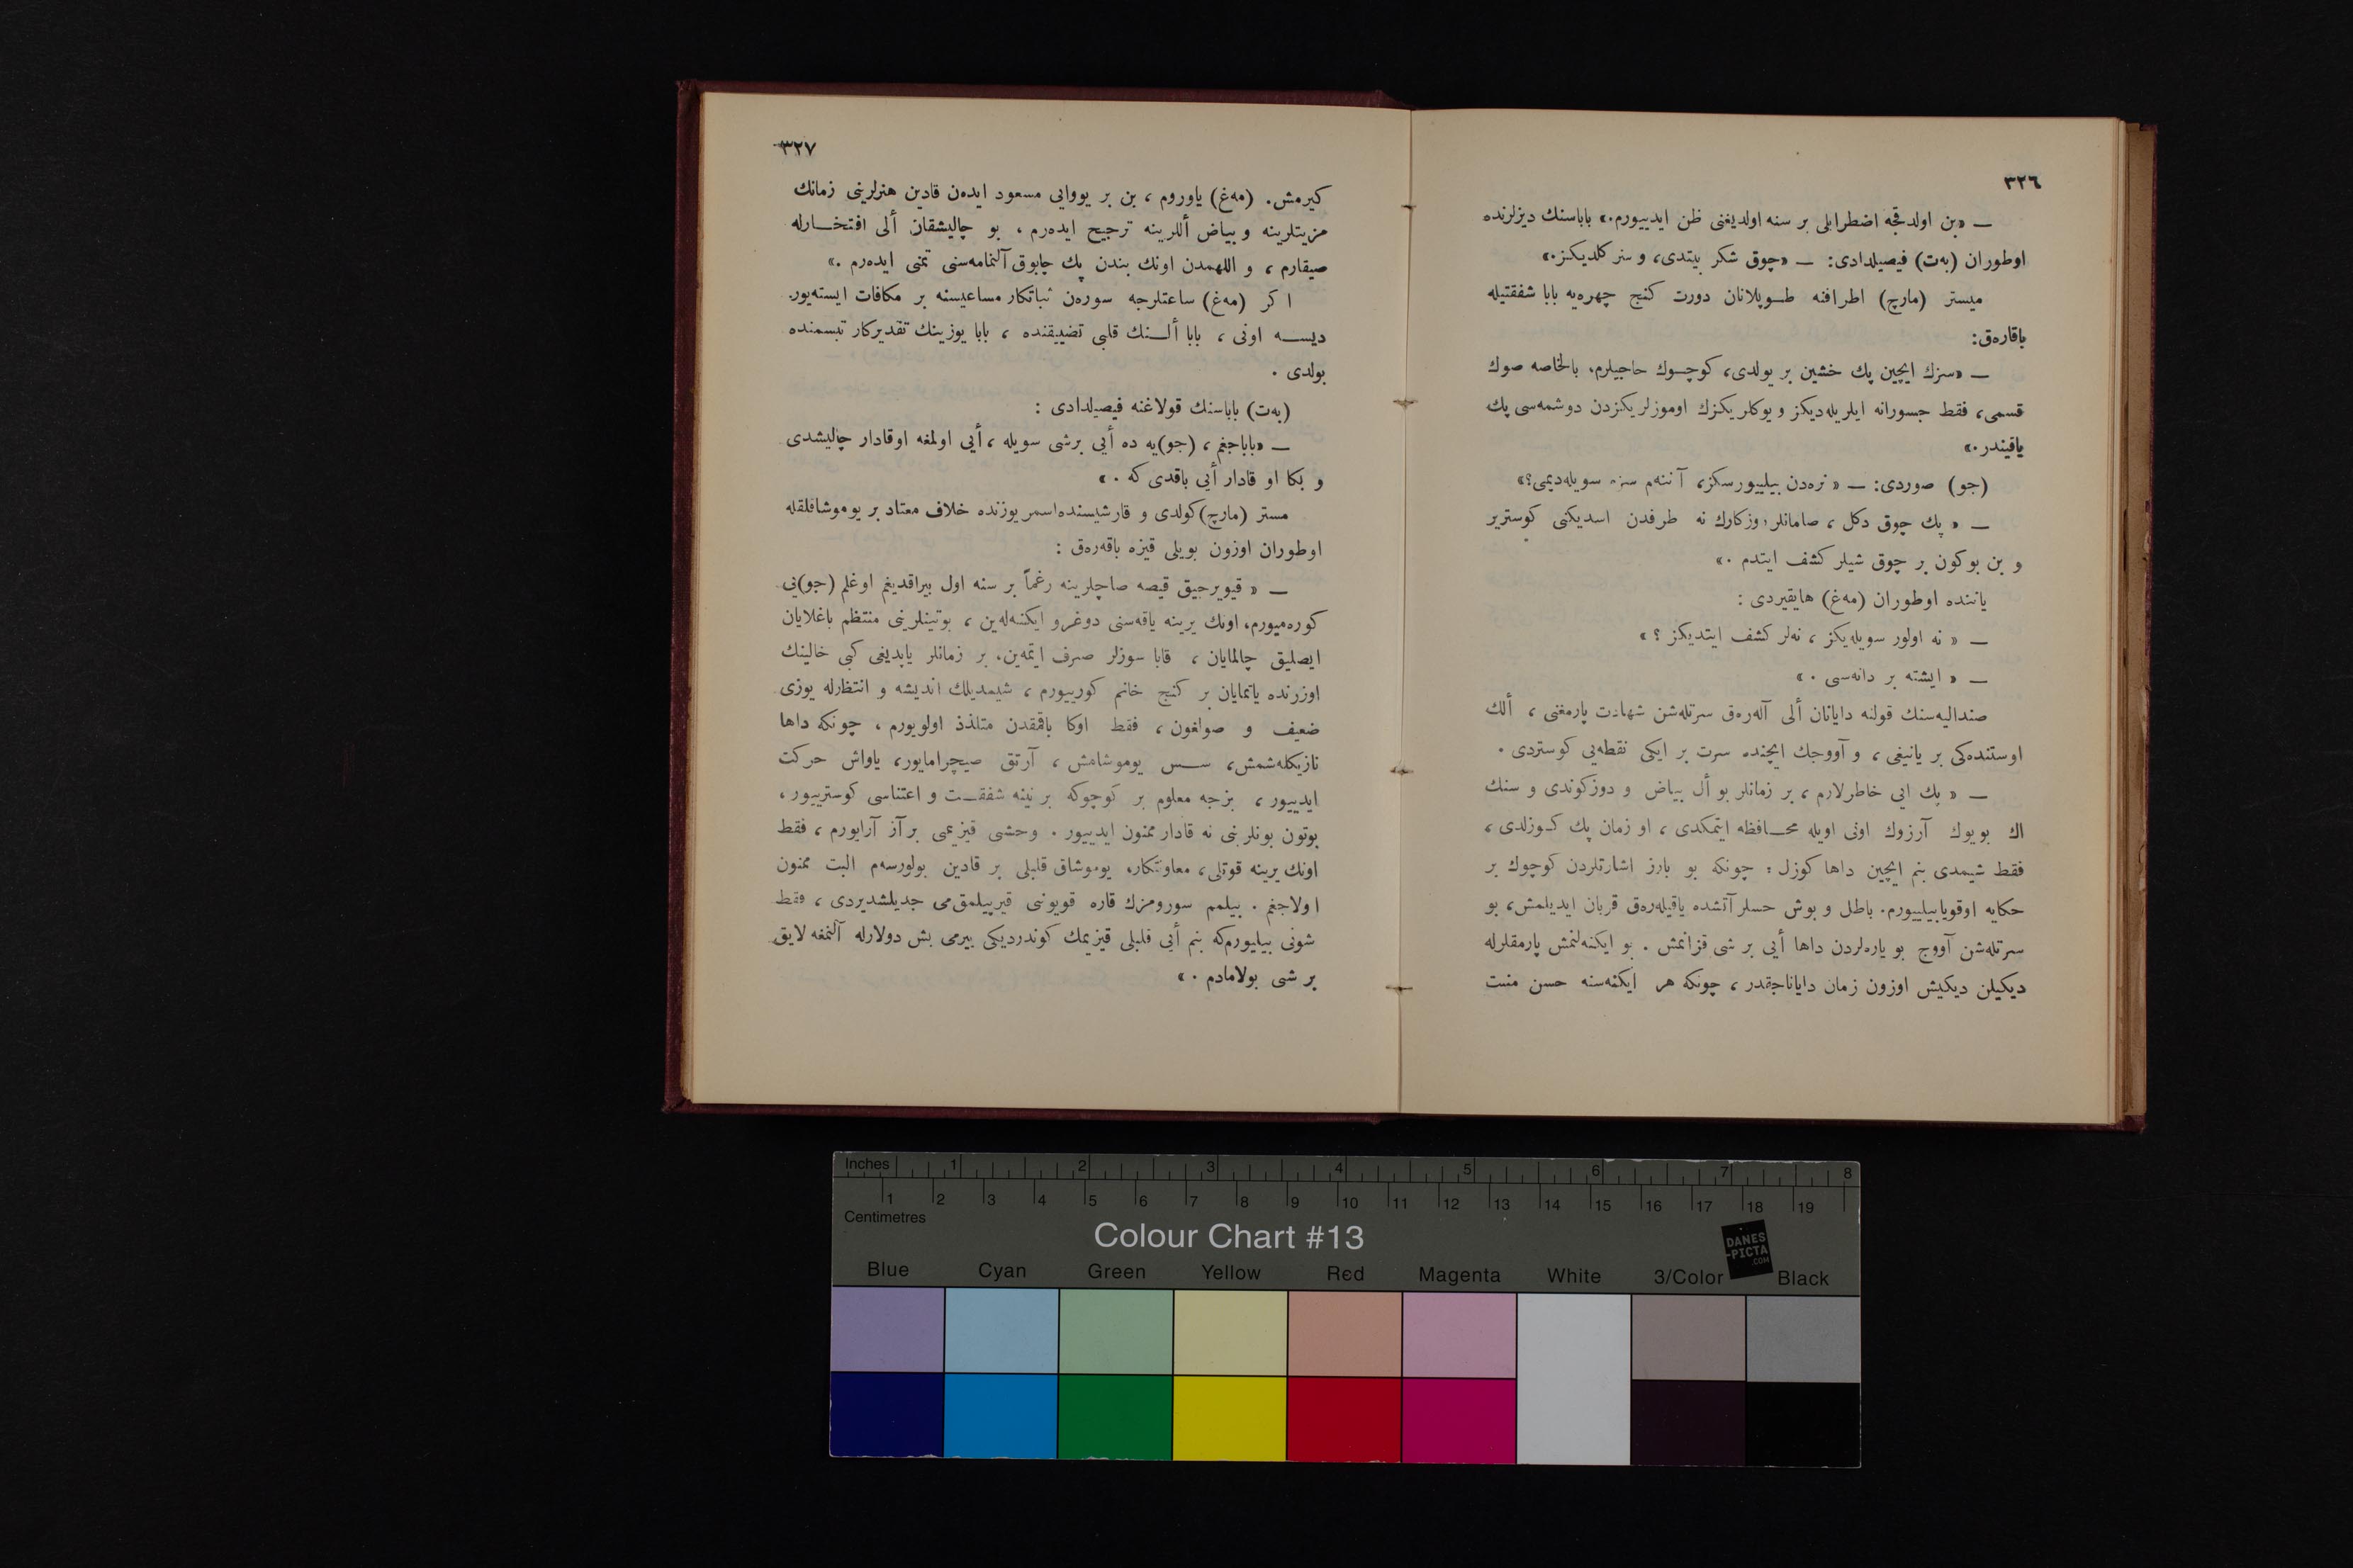 ٣٢٦
— «بن اولدقجه اضطرابلی بر سنه اولدیغنی ظن ایدییورم.» باباسنك دیزلرنده
اوطوران (به‌ت) فیصیلدادی: — «چوق شكر بیتدی، و سز كلدیكز.»
میستر (مارچ) اطرافنه طوپلانان دورت كنج چهره‌یه بابا شفقتیله
باقارەق:
— «سزك ایچین پك خشین بر یولدی، كوچوك حاجیلرم، بالخاصه صوك
قسمی، فقط جسورانه ایلریله‌دیكز و یوكلریكزك اوموزلریكزدن دوشمه‌سی پك
یاقیندر.»
(جو) صوردی: — «نره‌دن بیلییورسكز، آننه‌م سزه سویله‌دیمی؟»
— «پك چوق دكل، صامانلر روزكارك نه طرفدن اسدیكنی كوستریر
و بن بوكون بر چوق شیلر كشف ایتدم.»
یاننده اوطوران (مه‌غ) هایقیردی :
— «نه اولور سویله‌یكز، نه‌لر كشف ایتدیكز ؟»
— «ایشته بر دانه‌سی.»
صندالیه‌سنك قولنه دایانان ألی آلەرق سرتله‌شن شهادت پارمغنی، ألك
اوستنده‌كی بر یانیغی، و آووجك ایچنده سرت بر ایكی نقطه‌یی كوستردی.
— «پك ایی خاطرلارم، بر زمانلر بو أل بیاض و دوزكوندی و سنك
اك بویوك آرزوك اونی اویله محافظه ایتمكدی، او زمان پك كوزلدی،
فقط شیمدی بنم ایچین داها كوزل : چونكه بو بارز اشارتلردن كوچوك بر
حكایه اوقویابیلییورم. باطل و بوش حسلر آتشده یاقیله‌رق قربان ایدیلمش، بو
سرتله‌شن آووج بو یاره‌لردن داها أیی بر شی قزانمش. بو ایكنه‌لنمش پارمقلرله
دیكیلن دیكیش اوزون زمان دایاناجقدر، چونكه هر ایكنه‌سنه حسن منیت
٣٢٧
كیرمش. (مه‌غ) یاوروم، بن بر یووایی مسعود ایده‌ن قادین هنرلرینی زمانك
مزیتلرینه و بیاض أللرینه ترجیح ایده‌رم، بو چالیشقان ألی افتخارله
صیقارم، و اللهمدن اونك بندن پك چابوق آلنمامه‌سنی تمنی ایده‌رم.»
اكر (مه‌غ) ساعتلرجه سوره‌ن ثباتكار مساعیسنه بر مكافات ایسته‌یور
دیسه اونی، بابا ألنك قلبی تضییقنده، بابا یوزینك تقدیركار تبسمنده
بولدی.
(به‌ت) باباسنك قولاغنه فیصیلدادی :
— «باباجغم، (جو)یه ده أیی برشی سویله، أیی اولمغه اوقادار چالیشدی
و بكا او قادار أیی باقدی كه.»
مستر (مارچ) كولدی و قارشیسنده اسمر یوزنده خلاف معتاد بر یوموشاقلقله
اوطوران اوزون بویلی قیزه باقه‌رق :
— «قیویرجیق قیصه صاچلرینه رغماً بر سنه اول بیراقدیغم اوغلم (جو)یی
كوره‌میورم، اونك یرینه یاقه‌سنی دوغرو ایكنه‌له‌ین، بوتینلرینی منتظم باغلایان
ایصلیق چالمایان، قابا سوزلر صرف ایتمه‌ین، بر زمانلر یاپدیغی كبی خالینك
اوزرنده یاتمایان بر كنج خانم كورییورم، شیمدیلك اندیشه و انتظارله یوزی
ضعیف و صولغون، فقط اوكا باقمقدن متلذذ اولویورم، چونكه داها
نازیكله‌شمش، سس یوموشامش، آرتق صیچرامایور، یاواش حركت
ایدییور، بزجه معلوم بر كوچوكه بر نینه شفقت و اعتناسی كوسترییور،
بوتون بونلر بنی نه قادار ممنون ایدییور. وحشی قیزیمی بر آز آرایورم، فقط
اونك یرینه قوتلی، معاونتكار، یوموشاق قلبلی بر قادین بولورسه‌م البت ممنون
اولاجغم. بیلمم سورومزك قاره قویوننی قیرپیلمق‌می جدیلشدیردی، فقط
شونی بیلیورم‌كه بنم أیی قلبلی قیزیمك كوندردیكی بیرمی بش دولارله آلنمغه لایق
بر شی بولامادم.»
Inches 1 2 3 4 5 6 7 8
1 2 3 4 5 6 7 8 9 10 11 12 13 14 15 16 17 18 19
Centimetres
Colour Chart #13
DANES
-PICTA
.COM
Blue Cyan Green Yellow Red Magenta White 3/Color Black